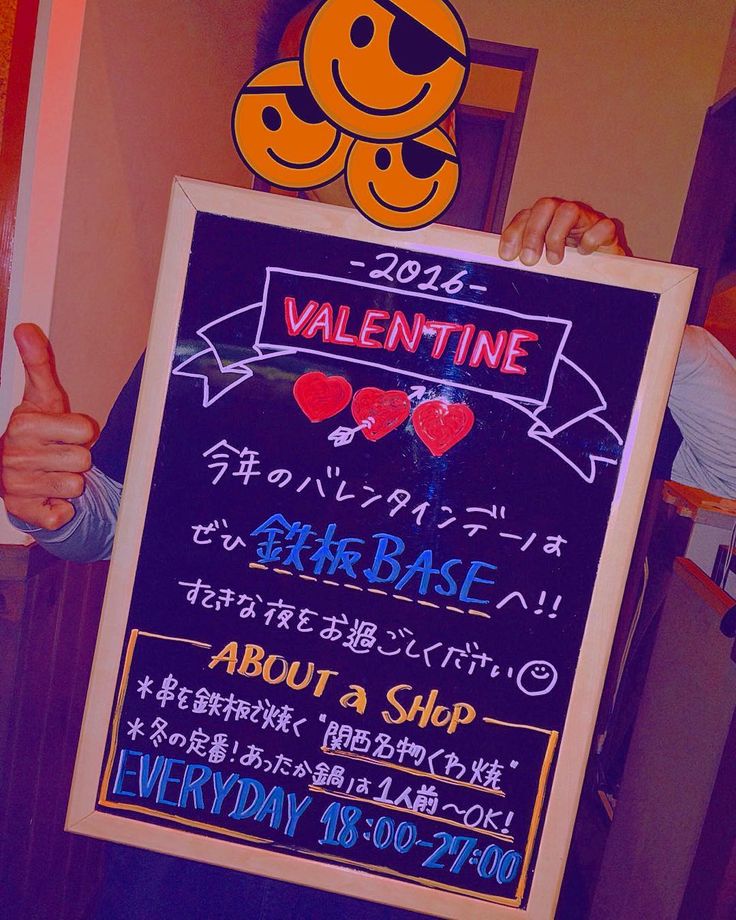 -2016-
VALENTINE
今年のバレンタインデーは
ぜひ鉄板BASEへ!!
すてきな夜をお過ごしください
ABOUT a SHOP
*串を鉄板で焼く"関西名物くわ焼"
*冬の定番!あったか鍋は1人前〜OK!
EVERYDAY 18:00-27:00